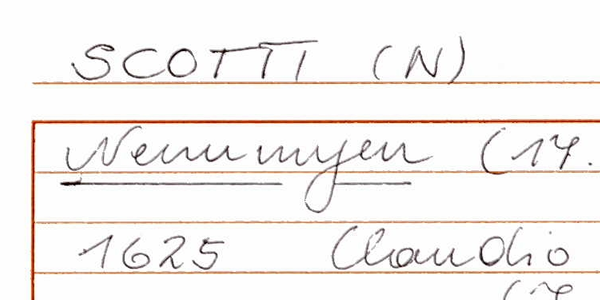 SCOTTI (N)
Nennungen (17.
1625 Claudio
(17